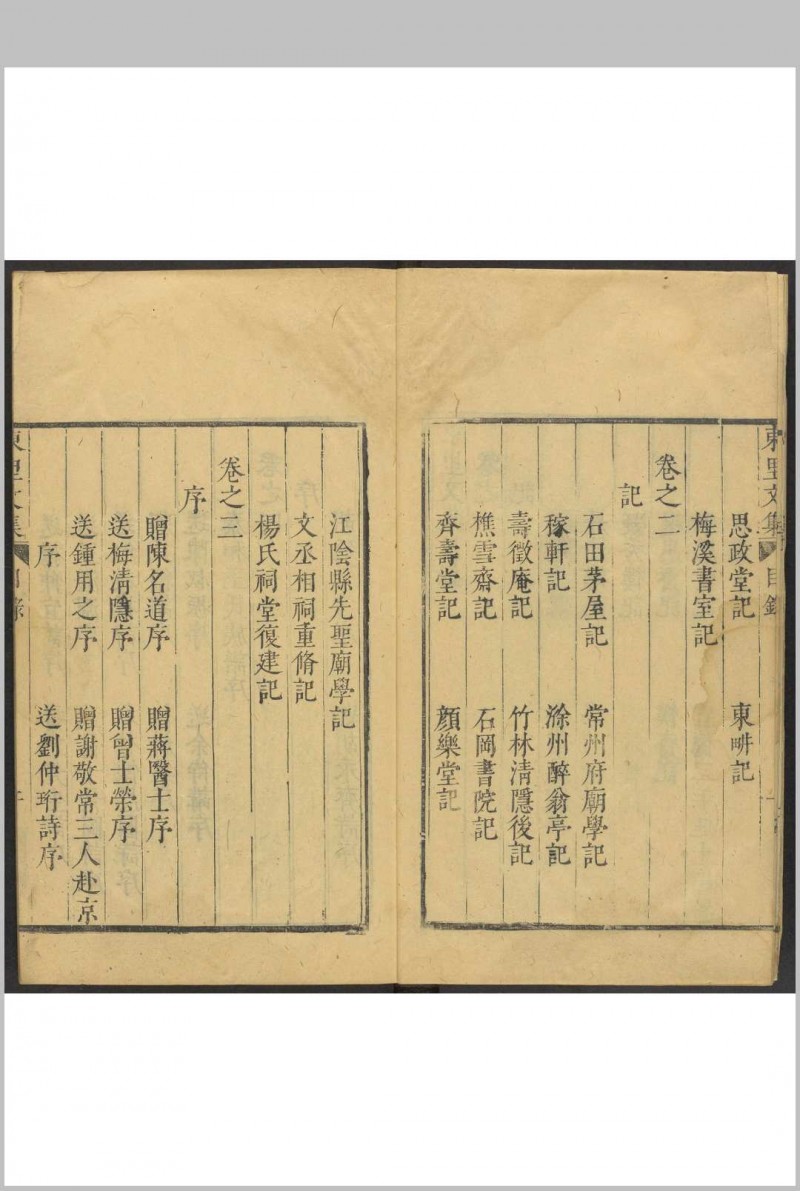 東里文集 目錄
思政堂記 東畊記
梅溪書室記
卷之二
記
石田茅屋記 常州府廟學記
稼軒記 滁州醉翁亭記
壽徵庵記 竹林清隱後記
樵雪齋記 石岡書院記
齊壽堂記 顏樂堂記
江陰縣先聖廟學記
文丞相祠重脩記
楊氏祠堂復建記
卷之三
序
贈陳名道序 贈蔣醫士序
送梅清隱序 贈曾士榮序
送鍾用之序 贈謝敬常三人赴京
序 送劉仲珩詩序
東里文集 目錄